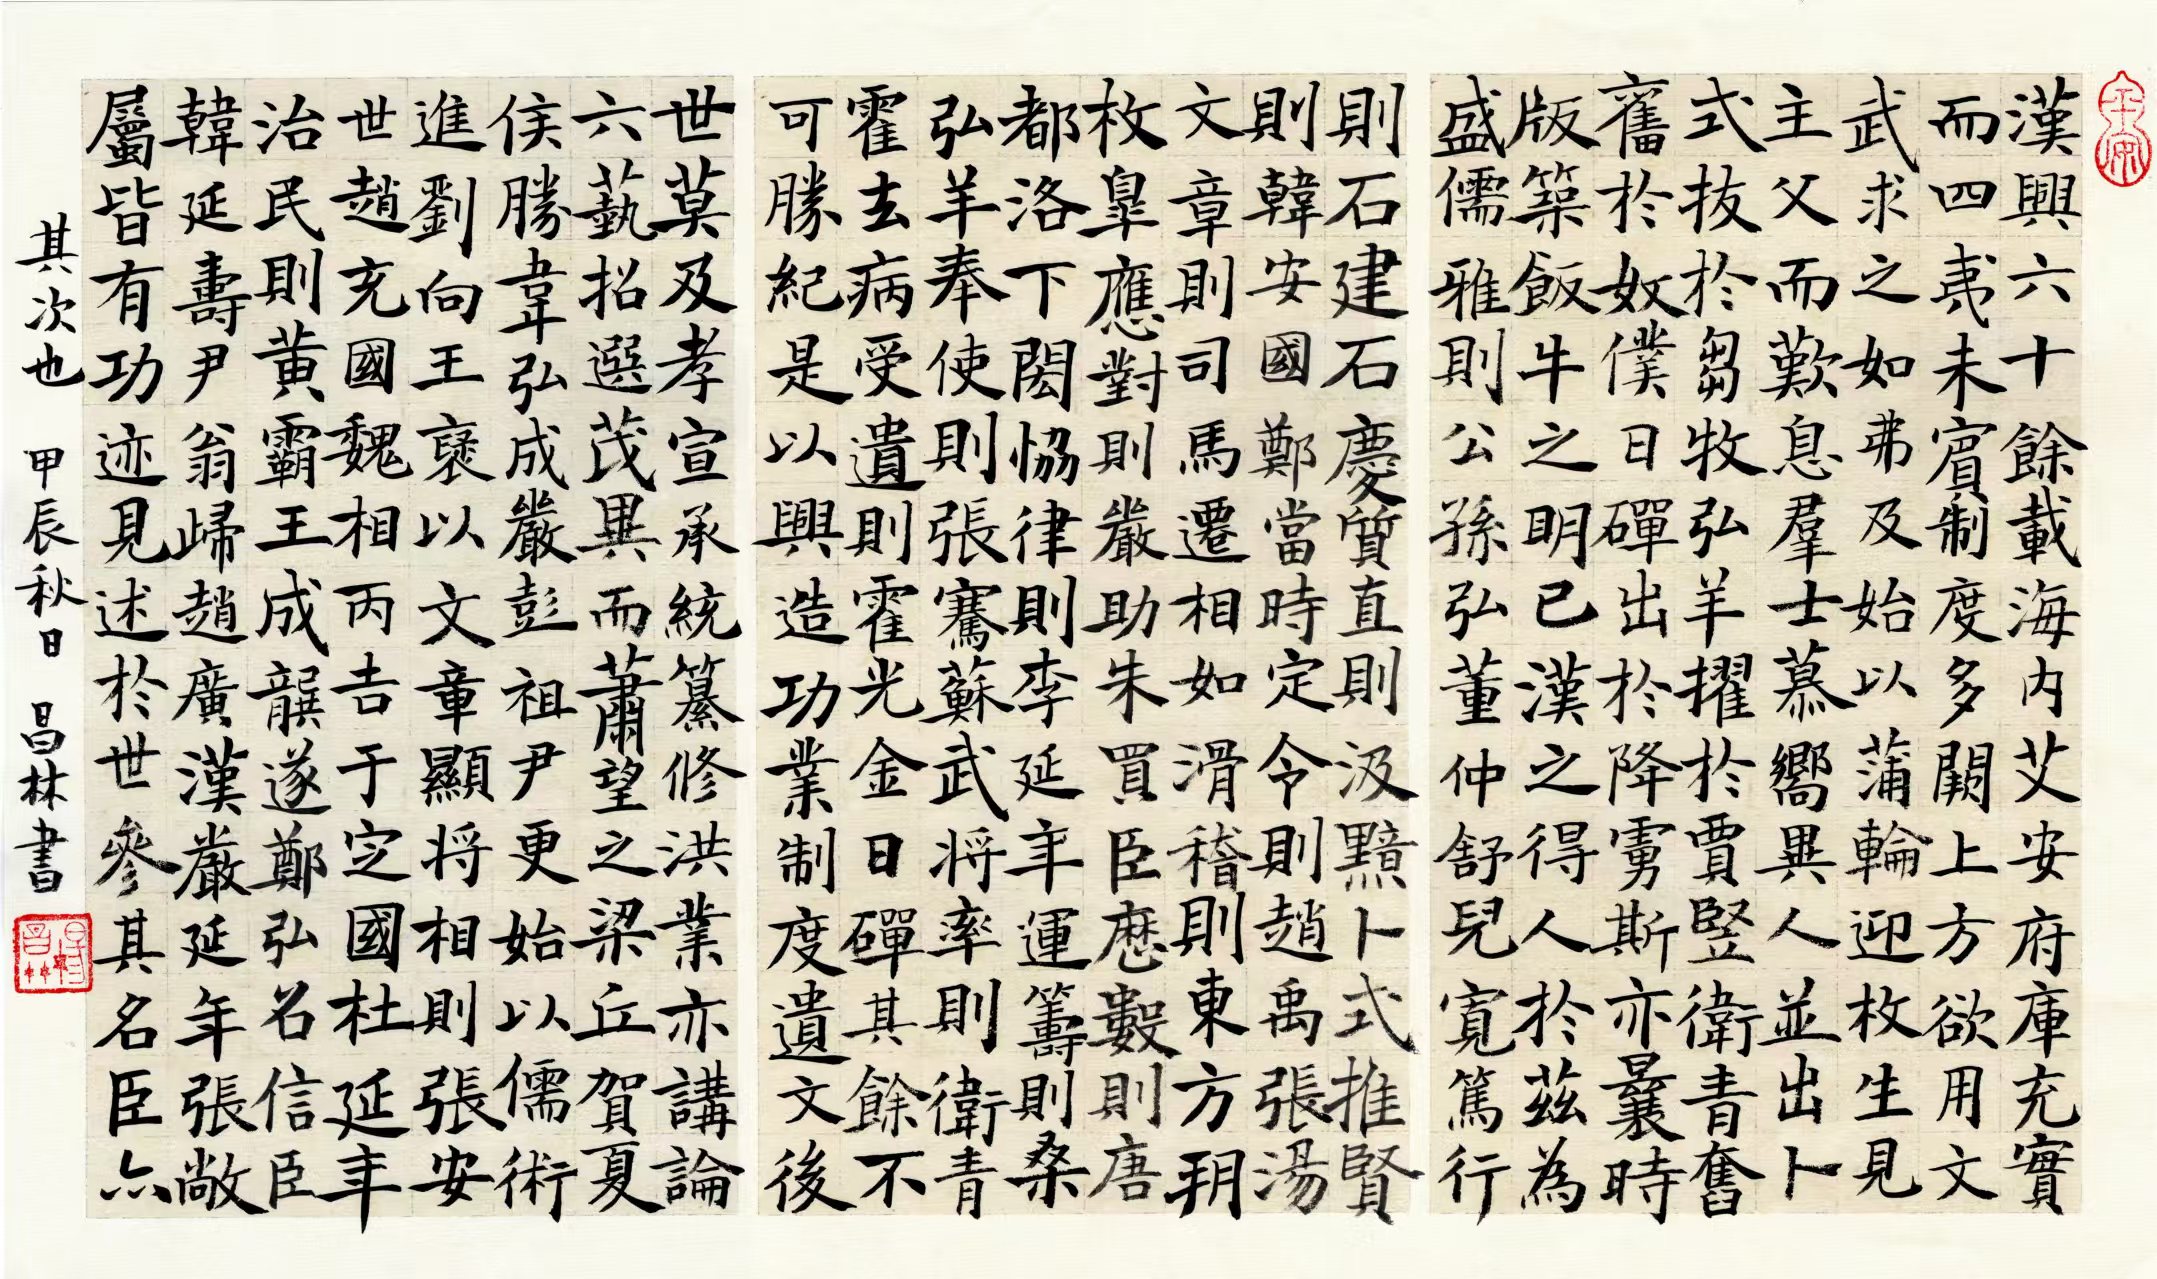 漢興六十餘載海內艾安府庫充實
而四夷未賓制度多闕上方欲用文
武求之如弗及始以蒲輪迎枚生見
主父而歎息羣士慕嚮異人並出卜
式拔於芻牧弘羊擢於賈豎衛青奮
舊於奴僕日磾出於降虜斯亦曩時
版築飯牛之明已漢之得人於茲為
盛儒雅則公孫弘董仲舒兒寬篤行
則石建石慶質直則汲黯卜式推賢
則韓安國鄭當時定令則趙禹張湯
文章則司馬遷相如滑稽則東方朔
枚皋應對則嚴助朱買臣歷數則唐
都洛下閎恊律則李延年運籌則桑
弘羊奉使則張騫蘇武將率則衛青
霍去病受遺則霍光金日磾其餘不
可勝紀是以興造功業制度遺文後
世莫及孝宣承統纂修洪業亦講論
六藝招選茂異而蕭望之梁丘賀夏
侯勝韋弘成嚴彭祖尹更始以儒術
進劉向王褒以文章顯將相則張安
世趙充國魏相丙吉于定國杜延年
治民則黃霸王成龔遂鄭弘名信臣
韓延壽尹翁歸趙廣漢嚴延年張敞
屬皆有功迹見述於世參其名臣亦
其次也 甲辰秋日 昌林書